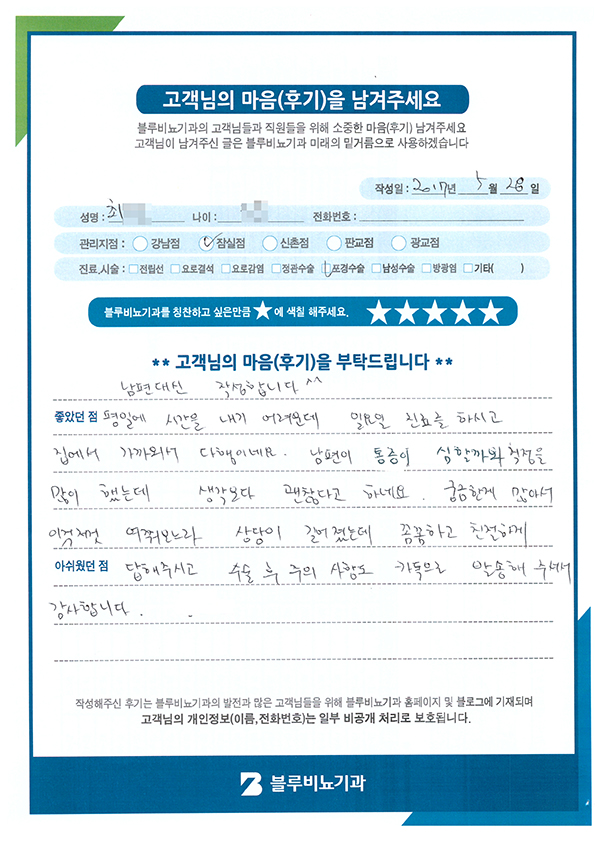 고객님의 마음(후기)을 남겨주세요
블루비뇨기과의 고객님들과 직원들을 위해 소중한 마음(후기) 남겨주세요
고객님이 남겨주신 글은 블루비뇨기과 미래의 밑거름으로 사용하겠습니다
작성일 : 2017년 5월 28일
성명 : 최 나이 : 전화번호 :
관리지점 : 강남점 잠실점 신촌점 판교점 광교점
진료,시술 : 전립선 요로결석 요로감염 정관수술 포경수술 남성수술 방광염 기타( )
블루비뇨기과를 칭찬하고 싶은만큼 ★에 색칠 해주세요. ★★★★★
** 고객님의 마음(후기)을 부탁드립니다 **
남편대신 작성합니다^^
좋았던 점 평일에 시간을 내기 어려운데 일요일 진료를 하시고
집에서 가까워서 다행이네요. 남편이 통증이 심할까봐 걱정을
많이 했는데 생각보다 괜찮다고 하네요. 궁금한게 많아서
이것저것 여쭤보느라 상담이 길어졌는데 꼼꼼하고 친절하게
아쉬웠던 점 답해주시고 수술 후 주의 사항도 카톡으로 발송해 주셔서
감사합니다.
작성해주신 후기는 블루비뇨기과의 발전과 많은 고객님들을 위해 블루비뇨기과 홈페이지 및 블로그에 기재되며
고객님의 개인정보(이름,전화번호)는 일부 비공개 처리로 보호됩니다.
블루비뇨기과